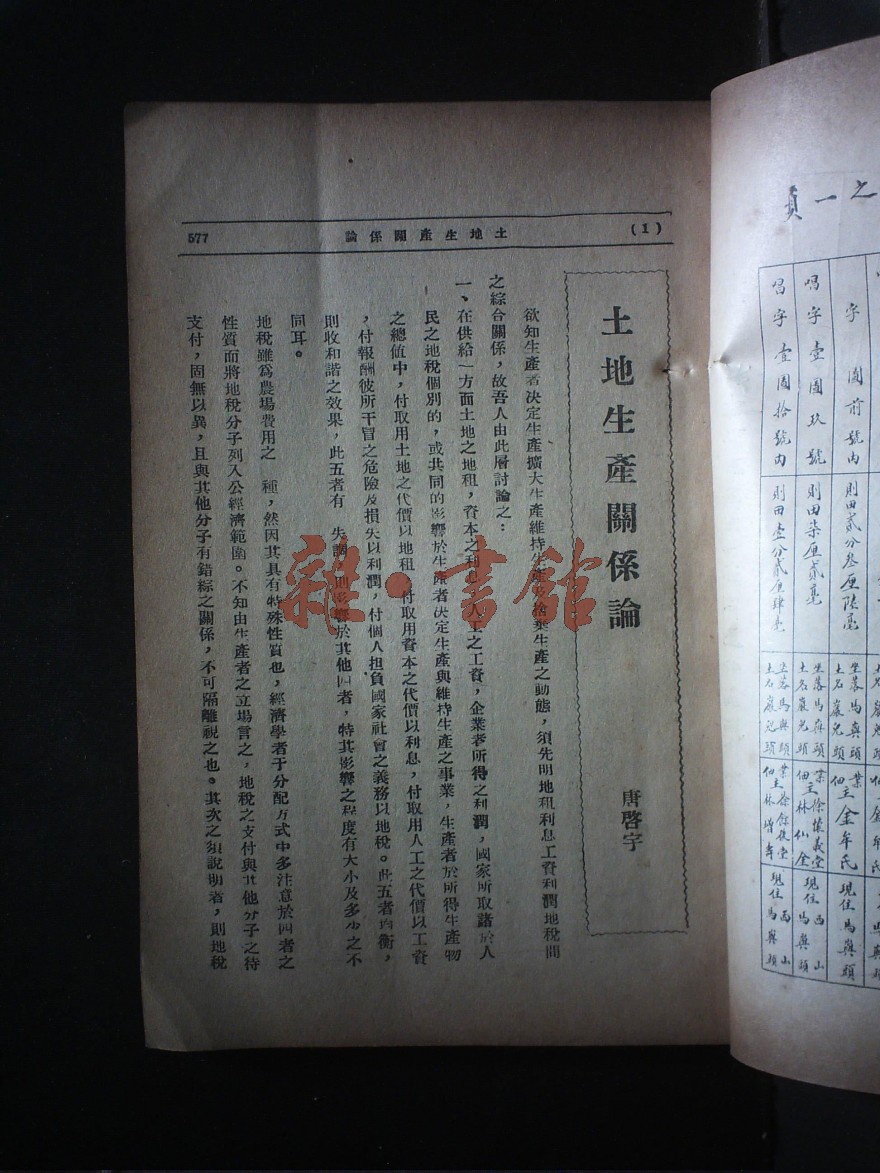 (1)
土地生產關係論
577
土地生產關係論
唐啓宇
欲知生產者決定生產擴大生產維持生產及捨棄生產之動態，須先明地租利息工資利潤地稅間
之綜合關係，故吾人由此層討論之：
一、在供給一方面土地之地租，資本之利息，人工之工資，企業者所得之利潤，國家所取諸於人
民之地稅個別的，或共同的影響於生產者決定生產與維持生產之事業，生產者於所得生產物
之總値中，付取用土地之代價以地租，付取用資本之代價以利息，付取用人工之代價以工資
，付報酬彼所干冒之危險及損失以利潤，付個人担負國家社會之義務以地稅。此五者均衡，
則收和諧之效果，此五者有　失調，則影響於其他四者，特其影響之程度有大小及多少之不
同耳。
地稅雖爲農場費用之　種，然因其具有特殊性質也，經濟學者于分配方式中多注意於四者之
性質而將地稅分子列入公經濟範圍。不知由生產者之立場言之，地稅之支付與其他分子之待
支付，固無以異，且與其他分子有錯綜之關係，不可隔離視之也。其次之須說明者，則地稅
雜·書館
之一頁
字　圖前號內
則田貳分叁厘陸毫
坐落馬與頭
土名巖兒頭
業
佃主金年氏
現住馬與頭
唱字壹圖玖號
則田柒厘貳毫
坐落馬與頭
土名巖兒頭
業徐懷義堂
佃主林仙全
現住西山馬與頭
唱字壹圖拾號內
則田壹分貳厘肆毫
坐落馬與頭
土名巖兒頭
佃主林增年
現住西山馬與頭